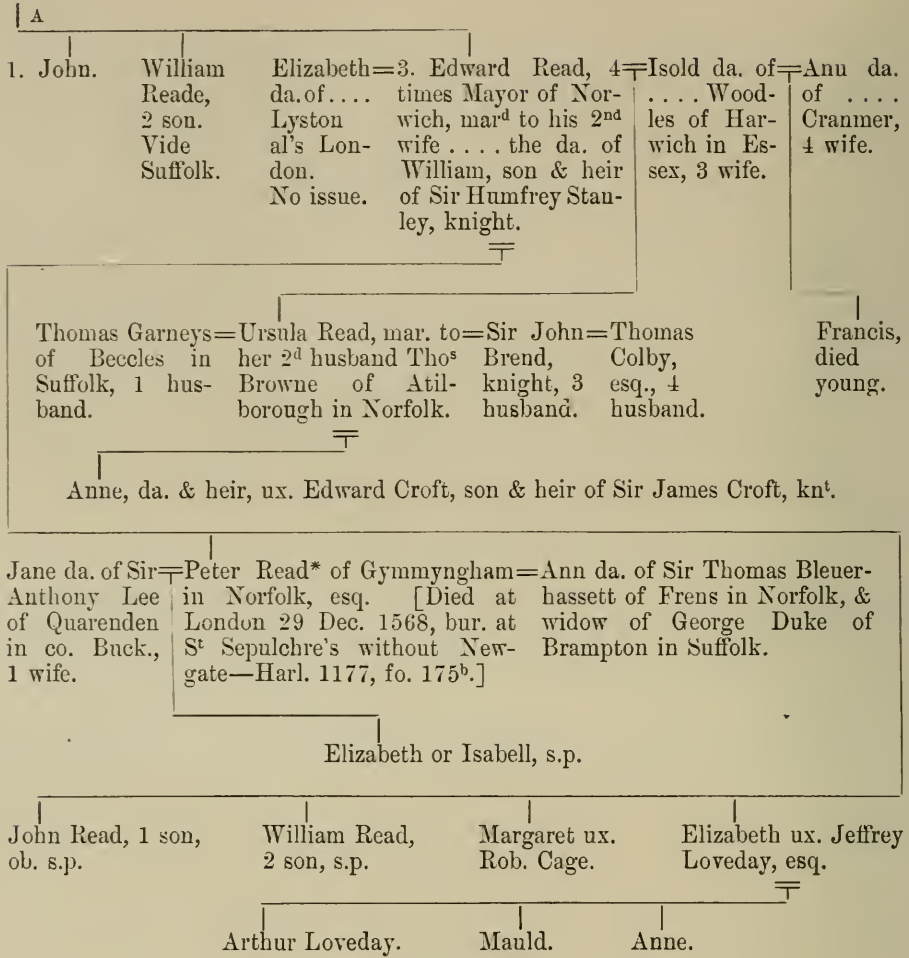 A
1. John.
William
Reade,
2 son.
Vide
Suffolk.
Elizabeth=
da. of . . . .
Lyston
al's Lon-
don.
No issue.
3. Edward Read, 4
times Mayor of Nor-
wich, marᵈ to his 2ⁿᵈ
wife . . . . the da. of
William, son & heir
of Sir Humfrey Stan-
ley, knight.
=Isold da. of=
. . . . Wood-
les of Har-
wich in Es-
sex, 3 wife.
Ann da.
of . . . .
Cranmer,
4 wife.
Thomas Garneys=
of Beccles in
Suffolk, 1 hus-
band.
Ursula Read, mar. to=
her 2ᵈ husband Thoˢ
Browne of Atil-
borough in Norfolk.
Sir John=
Brend,
knight, 3
husband.
Thomas
Colby,
esq., 4
husband.
Francis,
died
young.
Anne, da. & heir, ux. Edward Croft, son & heir of Sir James Croft, knᵗ.
Jane da. of Sir=
Anthony Lee
of Quarenden
in co. Buck.,
1 wife.
Peter Read* of Gymmyngham=
in Norfolk, esq. [Died at
London 29 Dec. 1568, bur. at
Sᵗ Sepulchre's without New-
gate—Harl. 1177, fo. 175ᵇ.]
Ann da. of Sir Thomas Bleuer-
hassett of Frens in Norfolk, &
widow of George Duke of
Brampton in Suffolk.
Elizabeth or Isabell, s.p.
John Read, 1 son,
ob. s.p.
William Read,
2 son, s.p.
Margaret ux.
Rob. Cage.
Elizabeth ux. Jeffrey
Loveday, esq.
Arthur Loveday.
Mauld.
Anne.